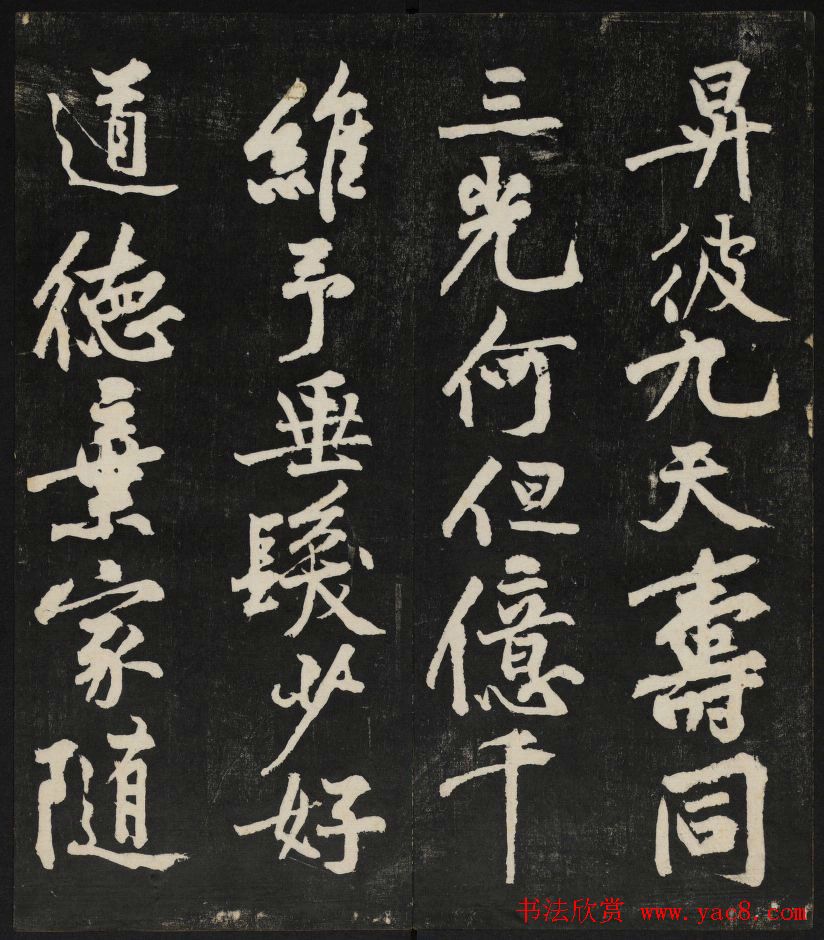 昇彼九天壽同
三光何但億千
維予垂髮少好
道德棄家隨
书法欣赏 www.yac8.com